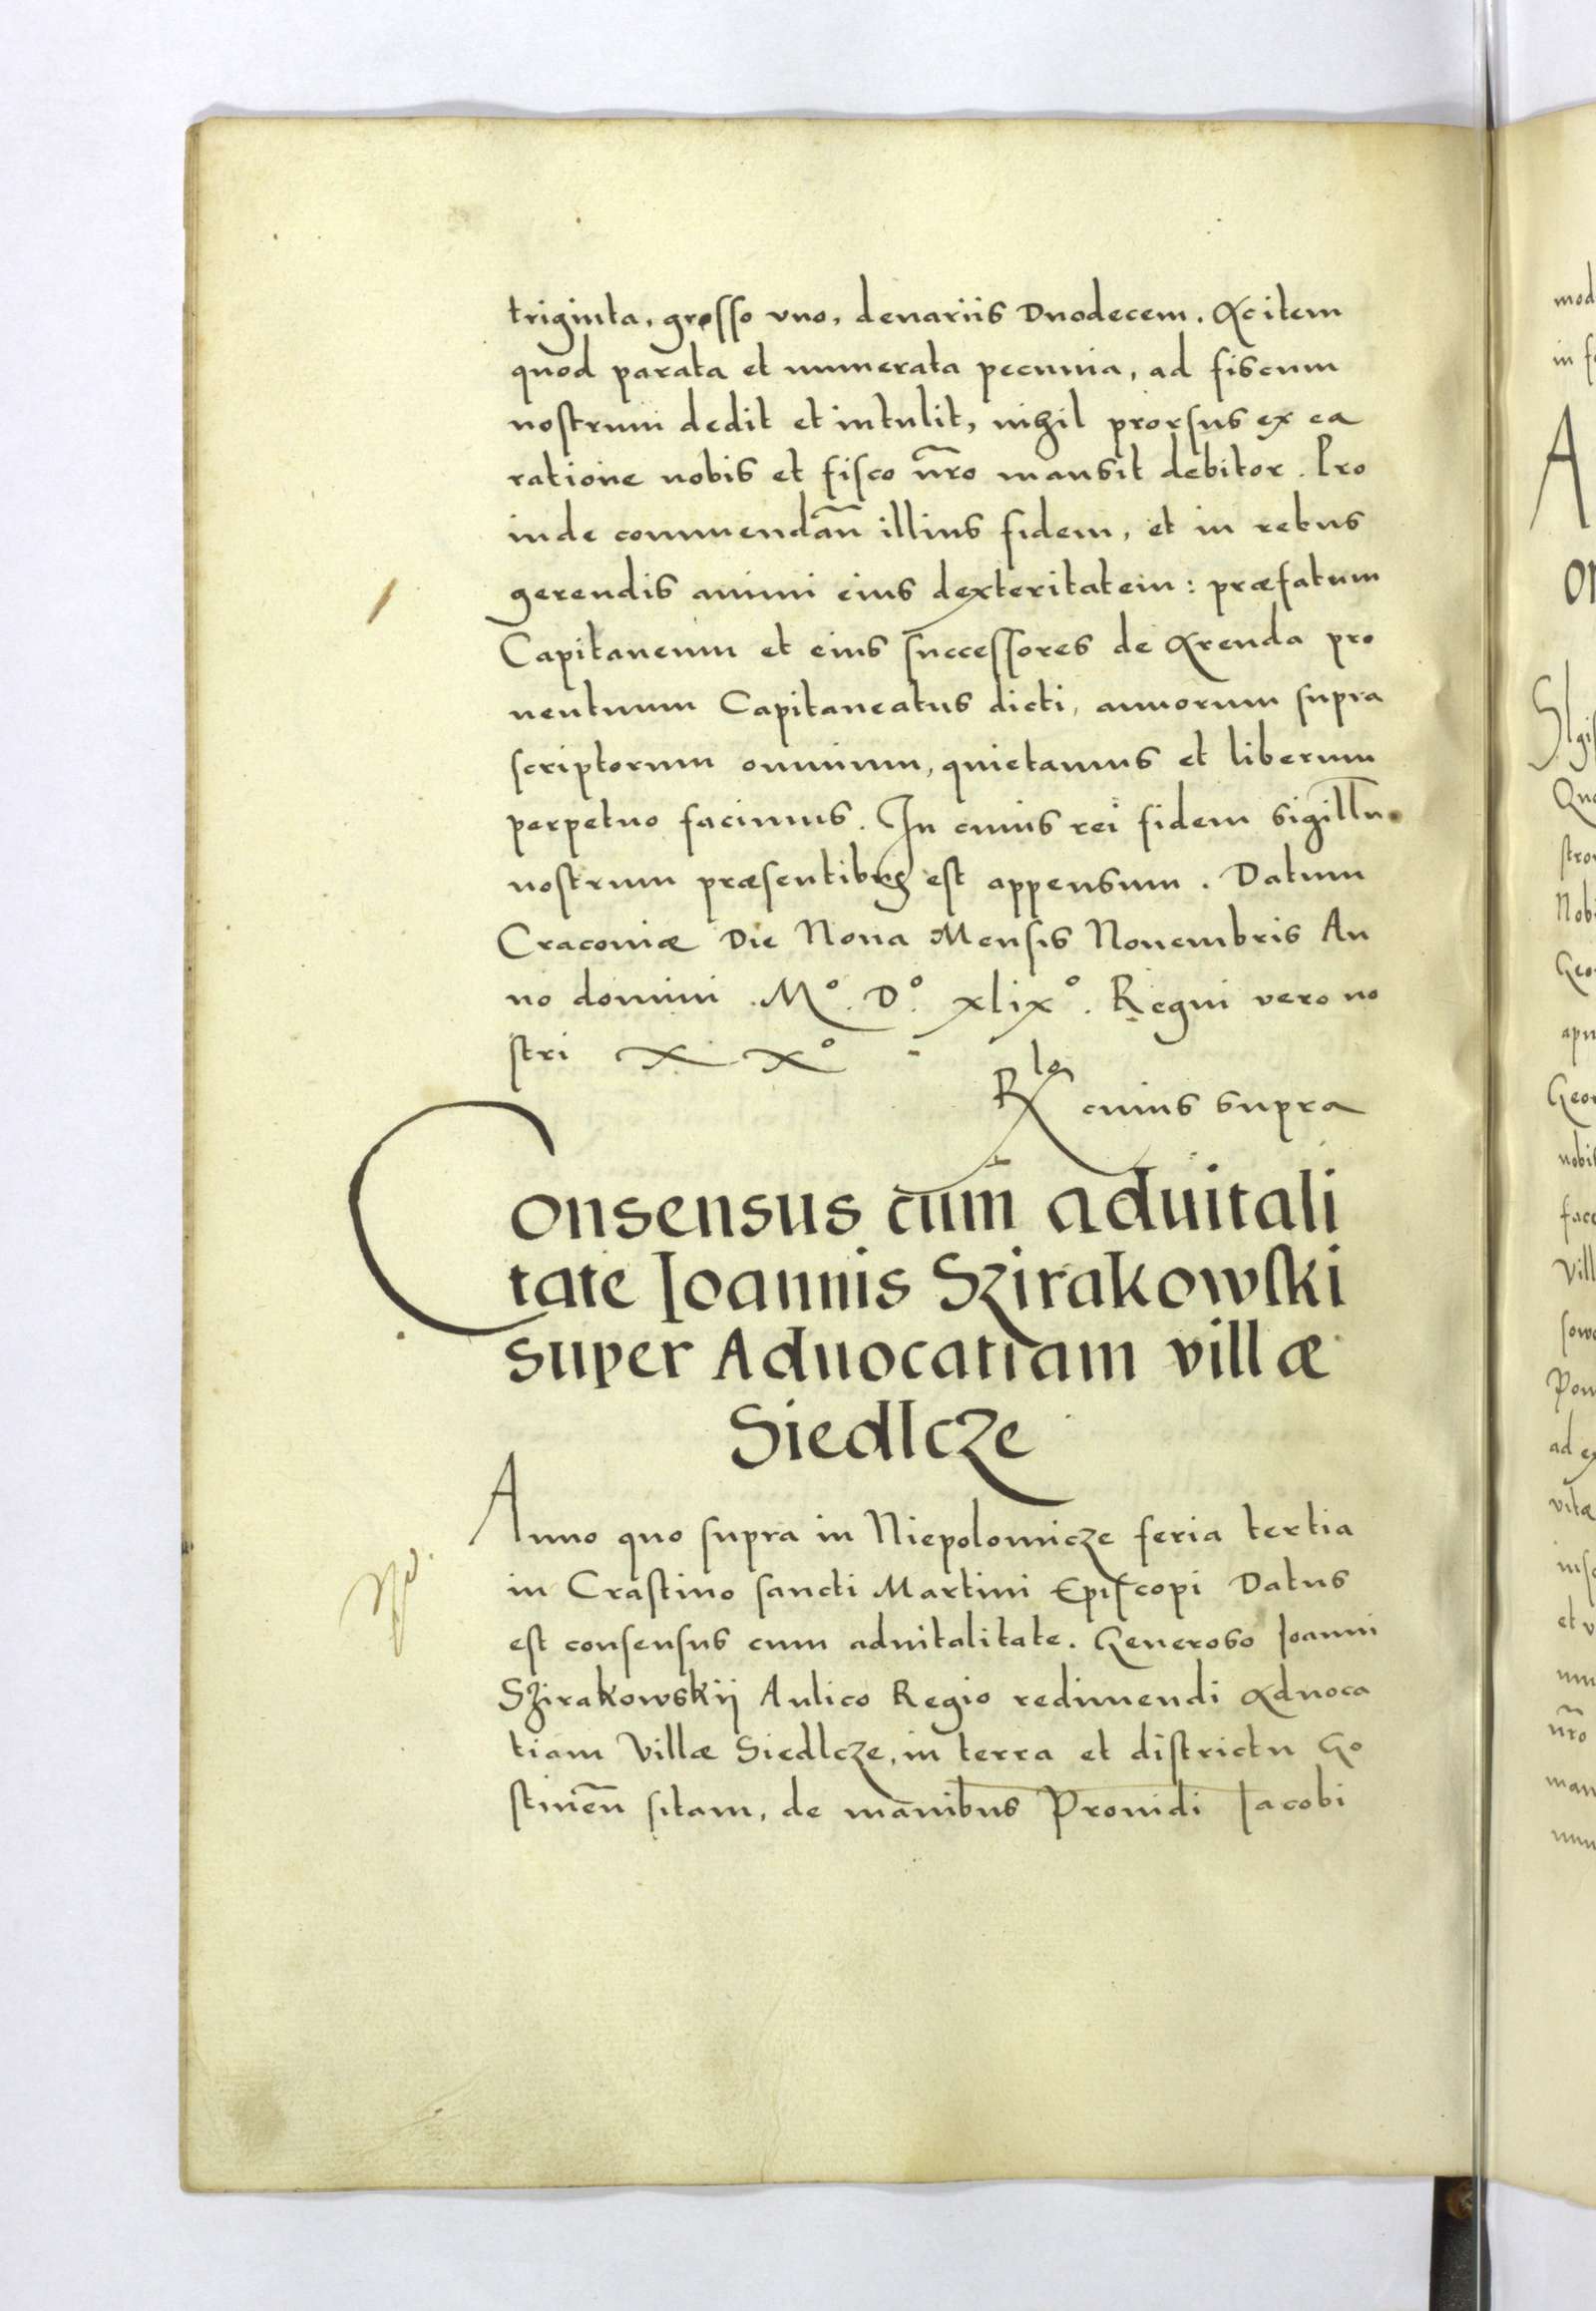 triginta, grosso vno, denariis Duodecem. Ac item
quod parata et numerata pecunia, ad fiscum
nostrum dedit et intulit, nihil prorsus ex ea
ratione nobis et fisco nr̃o mansit debitor. Pro
inde commendãn illius fidem, et in rebus
gerendis animi eius dexteritatem: præfatum
Capitaneum et eius successores de Arenda pro
uentuum Capitaneatus dicti, annorum supra
scriptorum omnium, quietamus et liberum
perpetuo facimus. In cuius rei fidem sigillũ
nostrum præsentibus est appensum. Datum
Cracouiæ Die Nona Mensis Nouembris An
no domini .Mº. Dº. xlixº. Regni vero no
stri XXº
Rlo cuius supra
Consensus cum aduitali
tate Ioannis Szirakowski
super Aduocatiam villæ
Siedlcze
Anno quo supra in Niepolomicze feria tertia
in Crastino sancti Martini Episcopi Datus
est consensus cum aduitalitate. Generoso Ioanni
Szirakowskij Aulico Regio redimendi Aduoca
tiam Villæ Siedlcze, in terra et districtu Go
stineñ sitam, de manibus Prouidi Iacobi
mod
in
A
on
Sigis
Qu
stro
Nob
Geo
apu
Geor
nobi
face
Vill
sow
Pon
ad ex
vitæ
et v
nr̃o
man